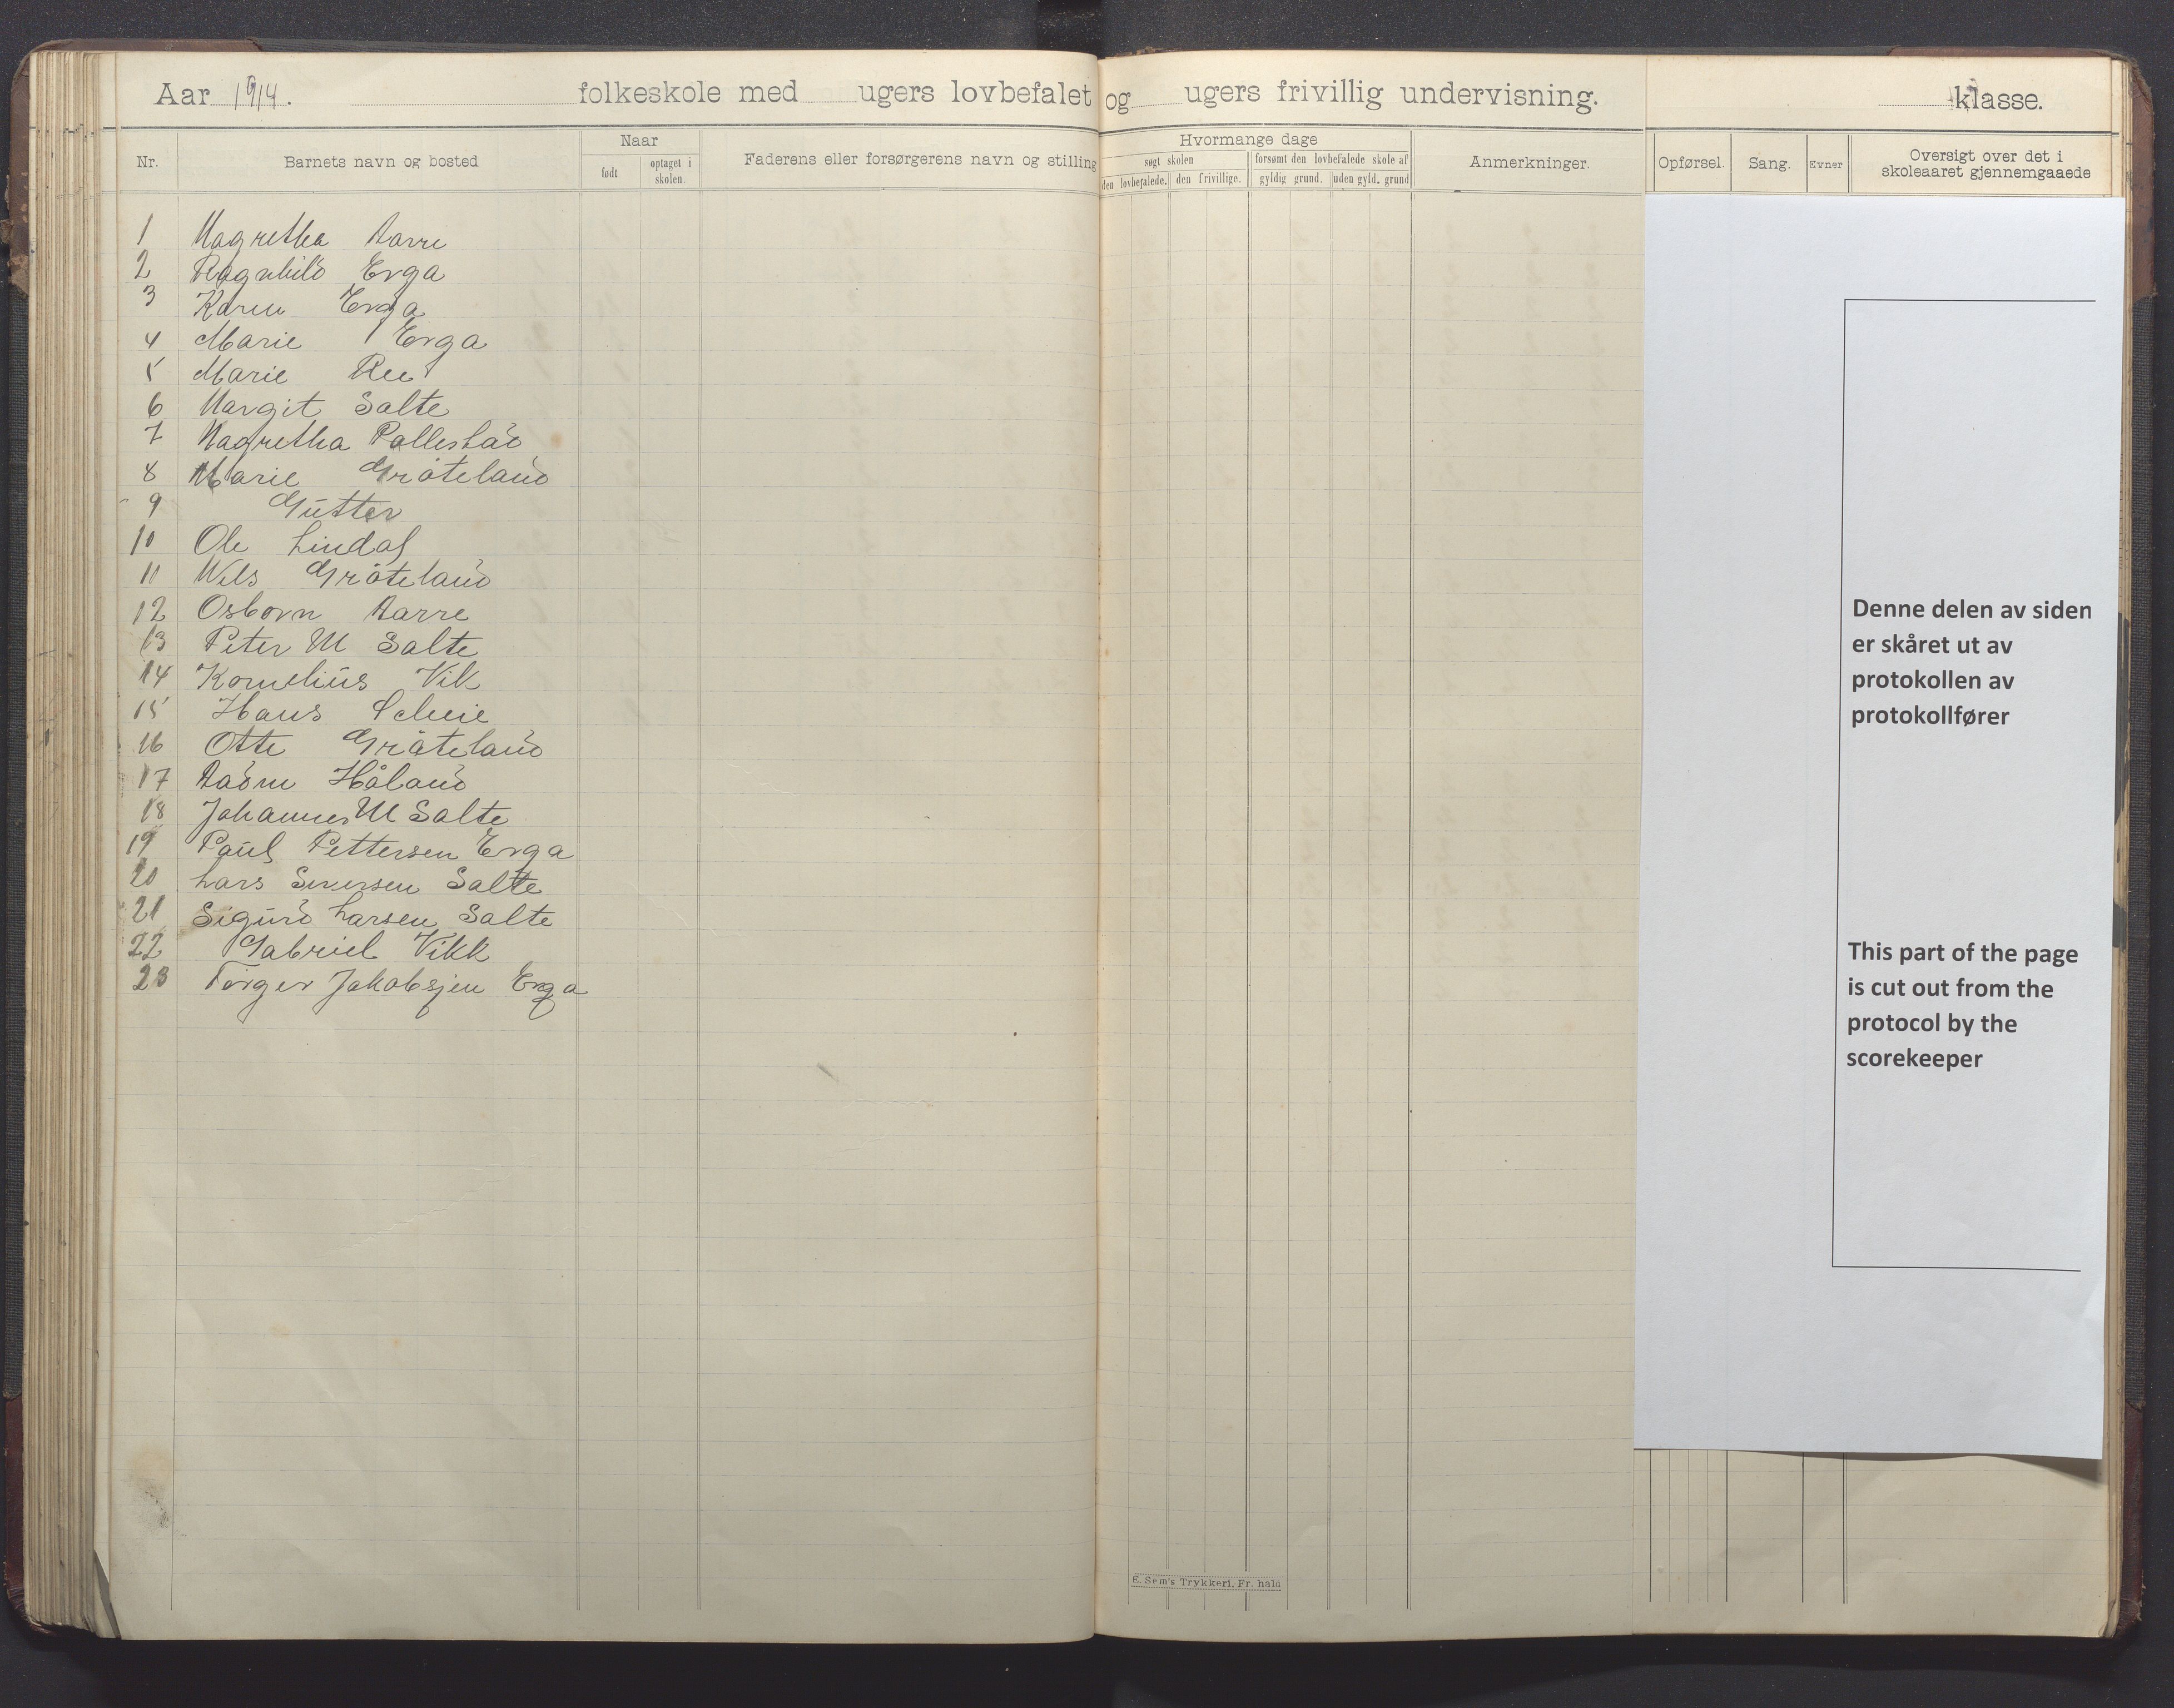 Aar 1914. folkeskole med ugers lovbefalet og ugers frivillig undervisning. klasse.
Nr. Barnets navn og bosted Naar født optaget i skolen. Faderens eller forsørgerens navn og stilling Hvormange dage søgt skolen den lovbefalede. den frivillige. forsømt den lovbefalede skole af gyldig grund. uden gyld. grund Anmerkninger. Opførsel. Sang. Evner Oversigt over det i skoleaaret gjennemgaaede
1 Magretha Aarre
2 Ragnhild Erga
3 Karen Erga
4 Marie Erga
5 Marie Ree
6 Margit Salte
7 Magretha Pollestad
8 Marie Gråteland
9 Gutter
10 Ole Lindal
11 Nils Gråteland
12 Osborn Aarre
13 Peter M Salte
14 Kornelius Vik
15 Hans
16 Otte Gråteland
17 Aadne Håland
18 Johannes M Salte
19 Paul Pettersen Erga
20 Lars Siversen Salte
21 Sigurd Larsen Salte
22 Gabriel Vikk
23 Torger Jakobsjen Erga
Denne delen av siden
er skåret ut av
protokollen av
protokollfører
This part of the page
is cut out from the
protocol by the
scorekeeper
E. Sem's Trykkeri, Fr. hald